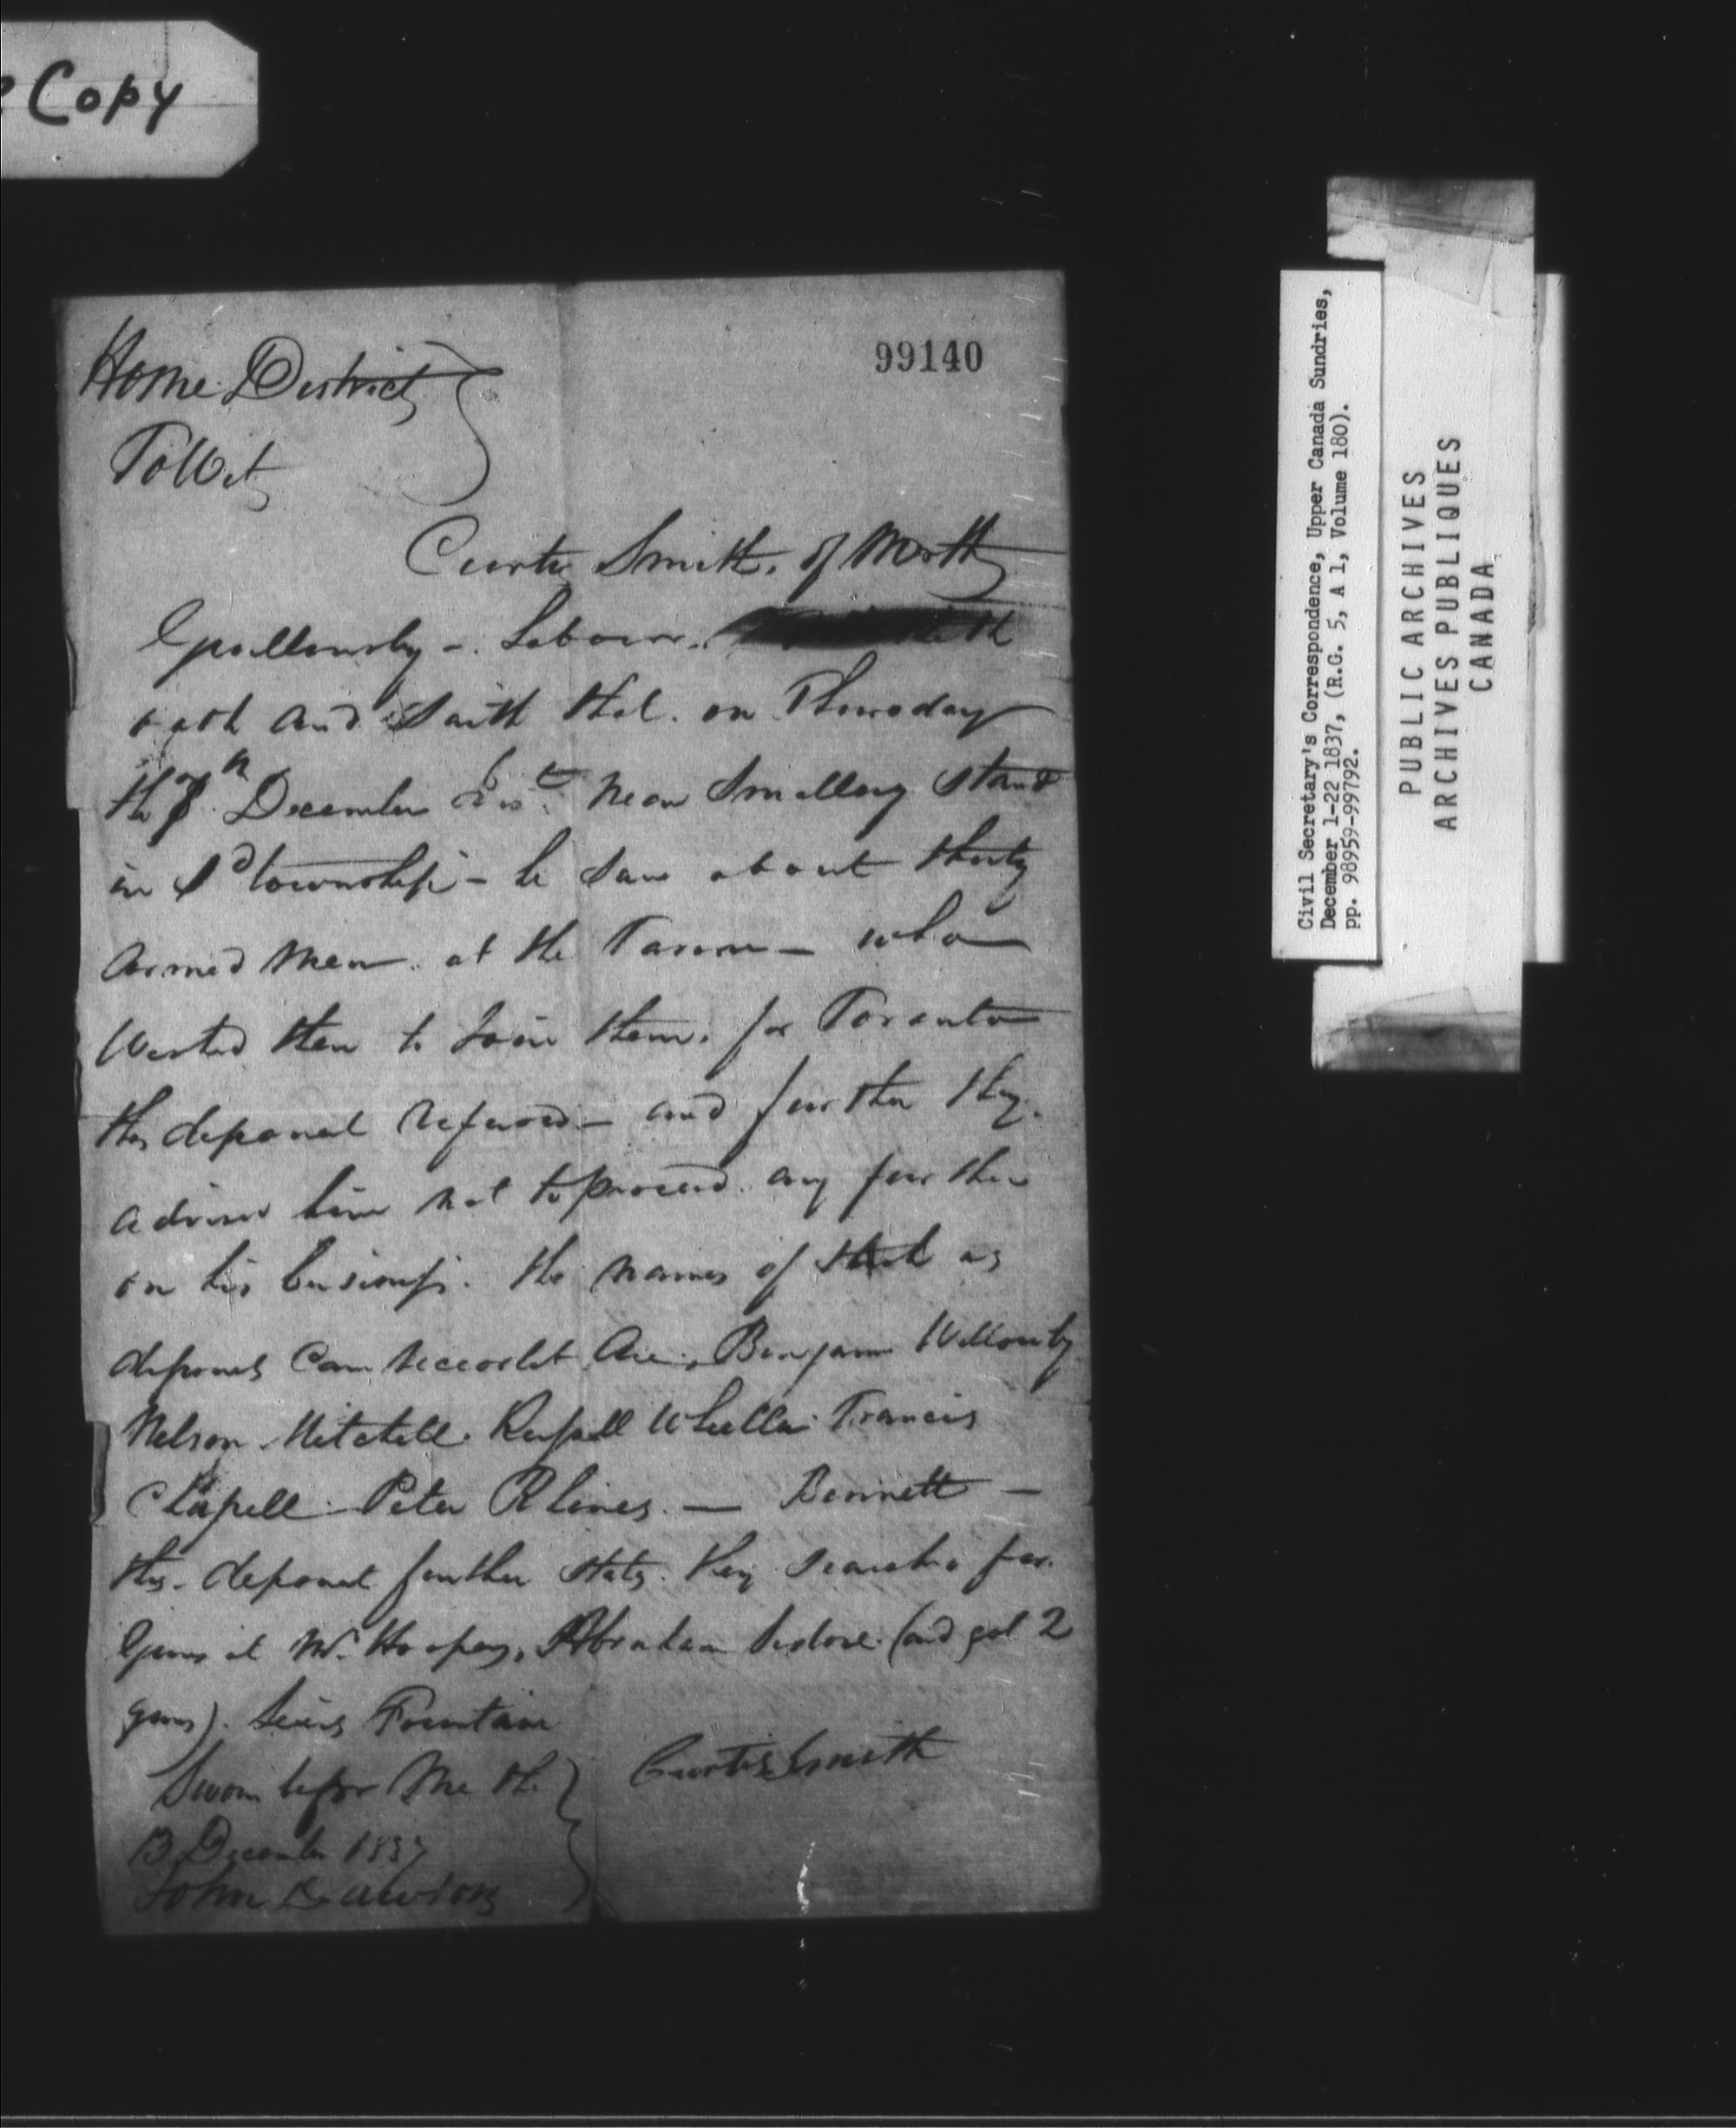 Copy
99140
Home District
To Wit
Curtis Smith. of North
Guillimsby - Labourer.
oath and Saith that. on Thursday
the 7th December near Smelsers stand
in sd township - he saw about thirty
armed men. at the Tavern - who
Wanted them to Join them. for Toronto
this deponent refused - and further they.
advised him not to proceed. any further
on his business. the names of such as
deponent Can reccolet Are. Benjamin Willowby
Nelson Mitchell. Russell Wheller Francis
Chapell. Peter Rhines. — Bennett —
this. deponent further states. they searched for.
Guns at Mr. Hoopers, Abraham (and got 2
guns). Fountain
Sworn before Me the
13 December 1837
Curtis Smith
John Dawson
Civil Secretary's Correspondence, Upper Canada Sundries,
December 1-22 1837, (R.G. 5, A 1, Volume 180).
pp. 98959-99792.
PUBLIC ARCHIVES
ARCHIVES PUBLIQUES
CANADA